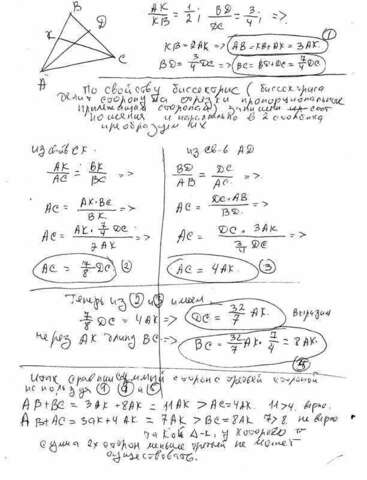 B
D
K
C
A
AK/KB = 1/2; BD/DC = 3/4; =>
KB = 2AK => AB = KB + AK = 3AK. (1)
BD = 3/4 DC => BC = BD + DC = 7/4 DC
По свойству биссектрис (биссектриса
делит сторону на отрезки пропорциональные
прилежащим сторонам)
и параллельно в 2 столбца
преобразуем их
из св-ва CK.
AK/AC = BK/BC =>
AC = AK·BC/BK =>
AC = AK · 7/4 DC/2AK =>
AC = 7/8 DC (2)
из св-в AD
BD/AB = DC/AC =>
AC = DC·AB/BD =>
AC = DC · 3AK/3/4 DC =>
AC = 4AK. (3)
Теперь из (2) и (3) имеем
7/8 DC = 4AK => DC = 32/7 AK. Выразим
через AK длину BC => BC = 32/7 AK · 7/4 = 8AK.
Итак сравним сторон с третьей стороной
используя
AB+BC = 3AK + 8AK = 11AK > AC = 4AK. 11>4. верно.
AB+AC = 3AK + 4AK = 7AK > BC = 8AK 7>8 не верно
такой Δ-к, у которого
сумма 2х сторон меньше третьей не может
существовать.